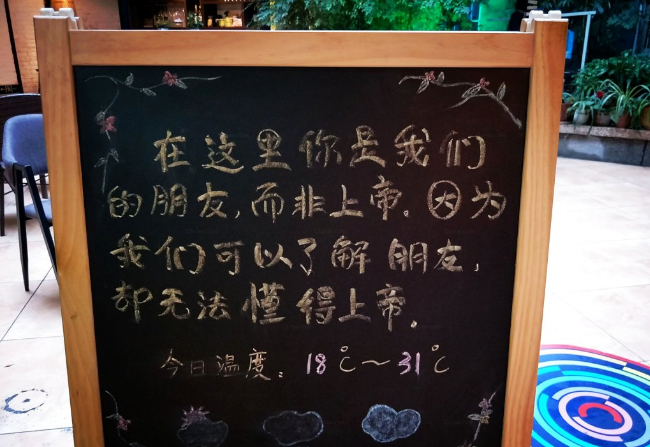 在这里你是我们
的朋友，而非上帝。因为
我们可以了解朋友，
却无法懂得上帝。
今日温度：18℃～31℃